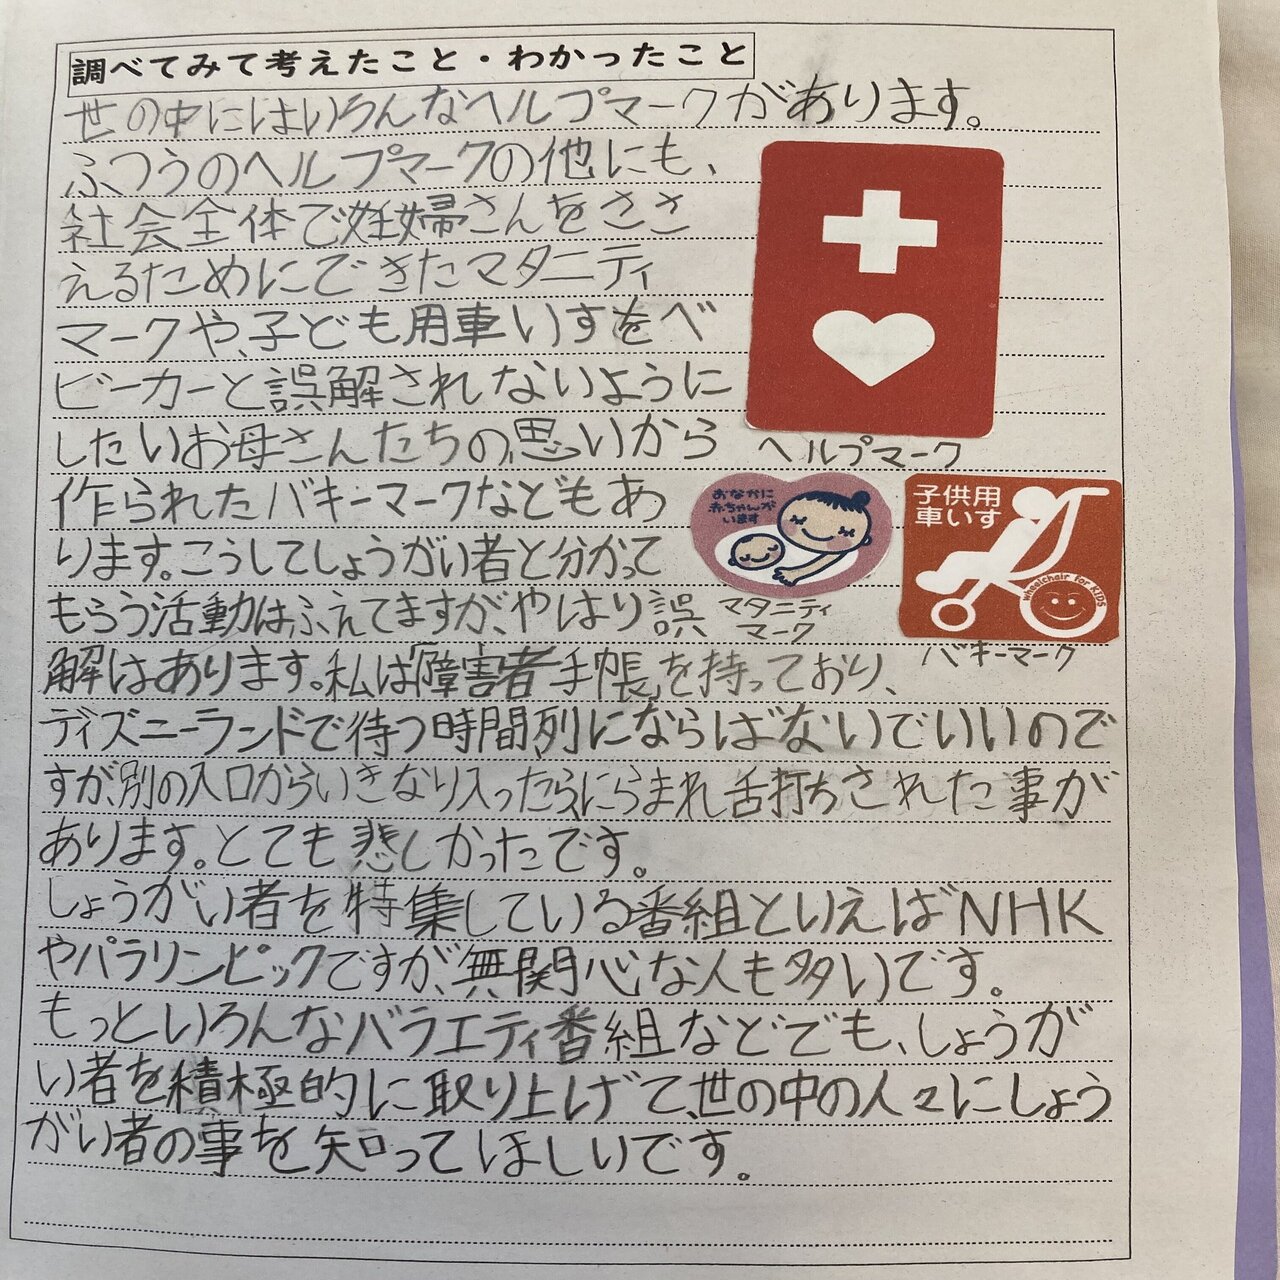 調べてみて考えたこと・わかったこと
世の中にはいろんなヘルプマークがあります。
ふつうのヘルプマークの他にも、
社会全体で妊婦さんをささ
えるためにできたマタニティ
マークや、子ども用車いすをべ
ビーカーと誤解されないように
したいお母さんたちの思いから
ヘルプマーク
作られたバギーマークなどもあ
おなかに
赤ちゃんが
います
子供用
車いす
wheelchair for KIDS
ります。こうしてしょうがい者と分かって
もらう活動はふえてますが、やはり誤
マタニティ
マーク
バギーマーク
解はあります。私は「障害者手帳」を持っており、
ディズニーランドで待つ時間列にならばないでいいので
すが、別の入口からいきなり入ったら、にらまれ舌打ちされた事が
あります。とても悲しかったです。
しょうがい者を特集している番組といえばNHK
やパラリンピックですが、無関心な人も多いです。
もっといろんなバラエティ番組などでも、しょうが
い者を積極的に取り上げて、世の中の人々にしょう
がい者の事を知ってほしいです。